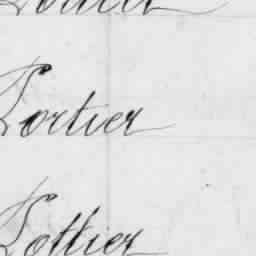 Portier
Pottier